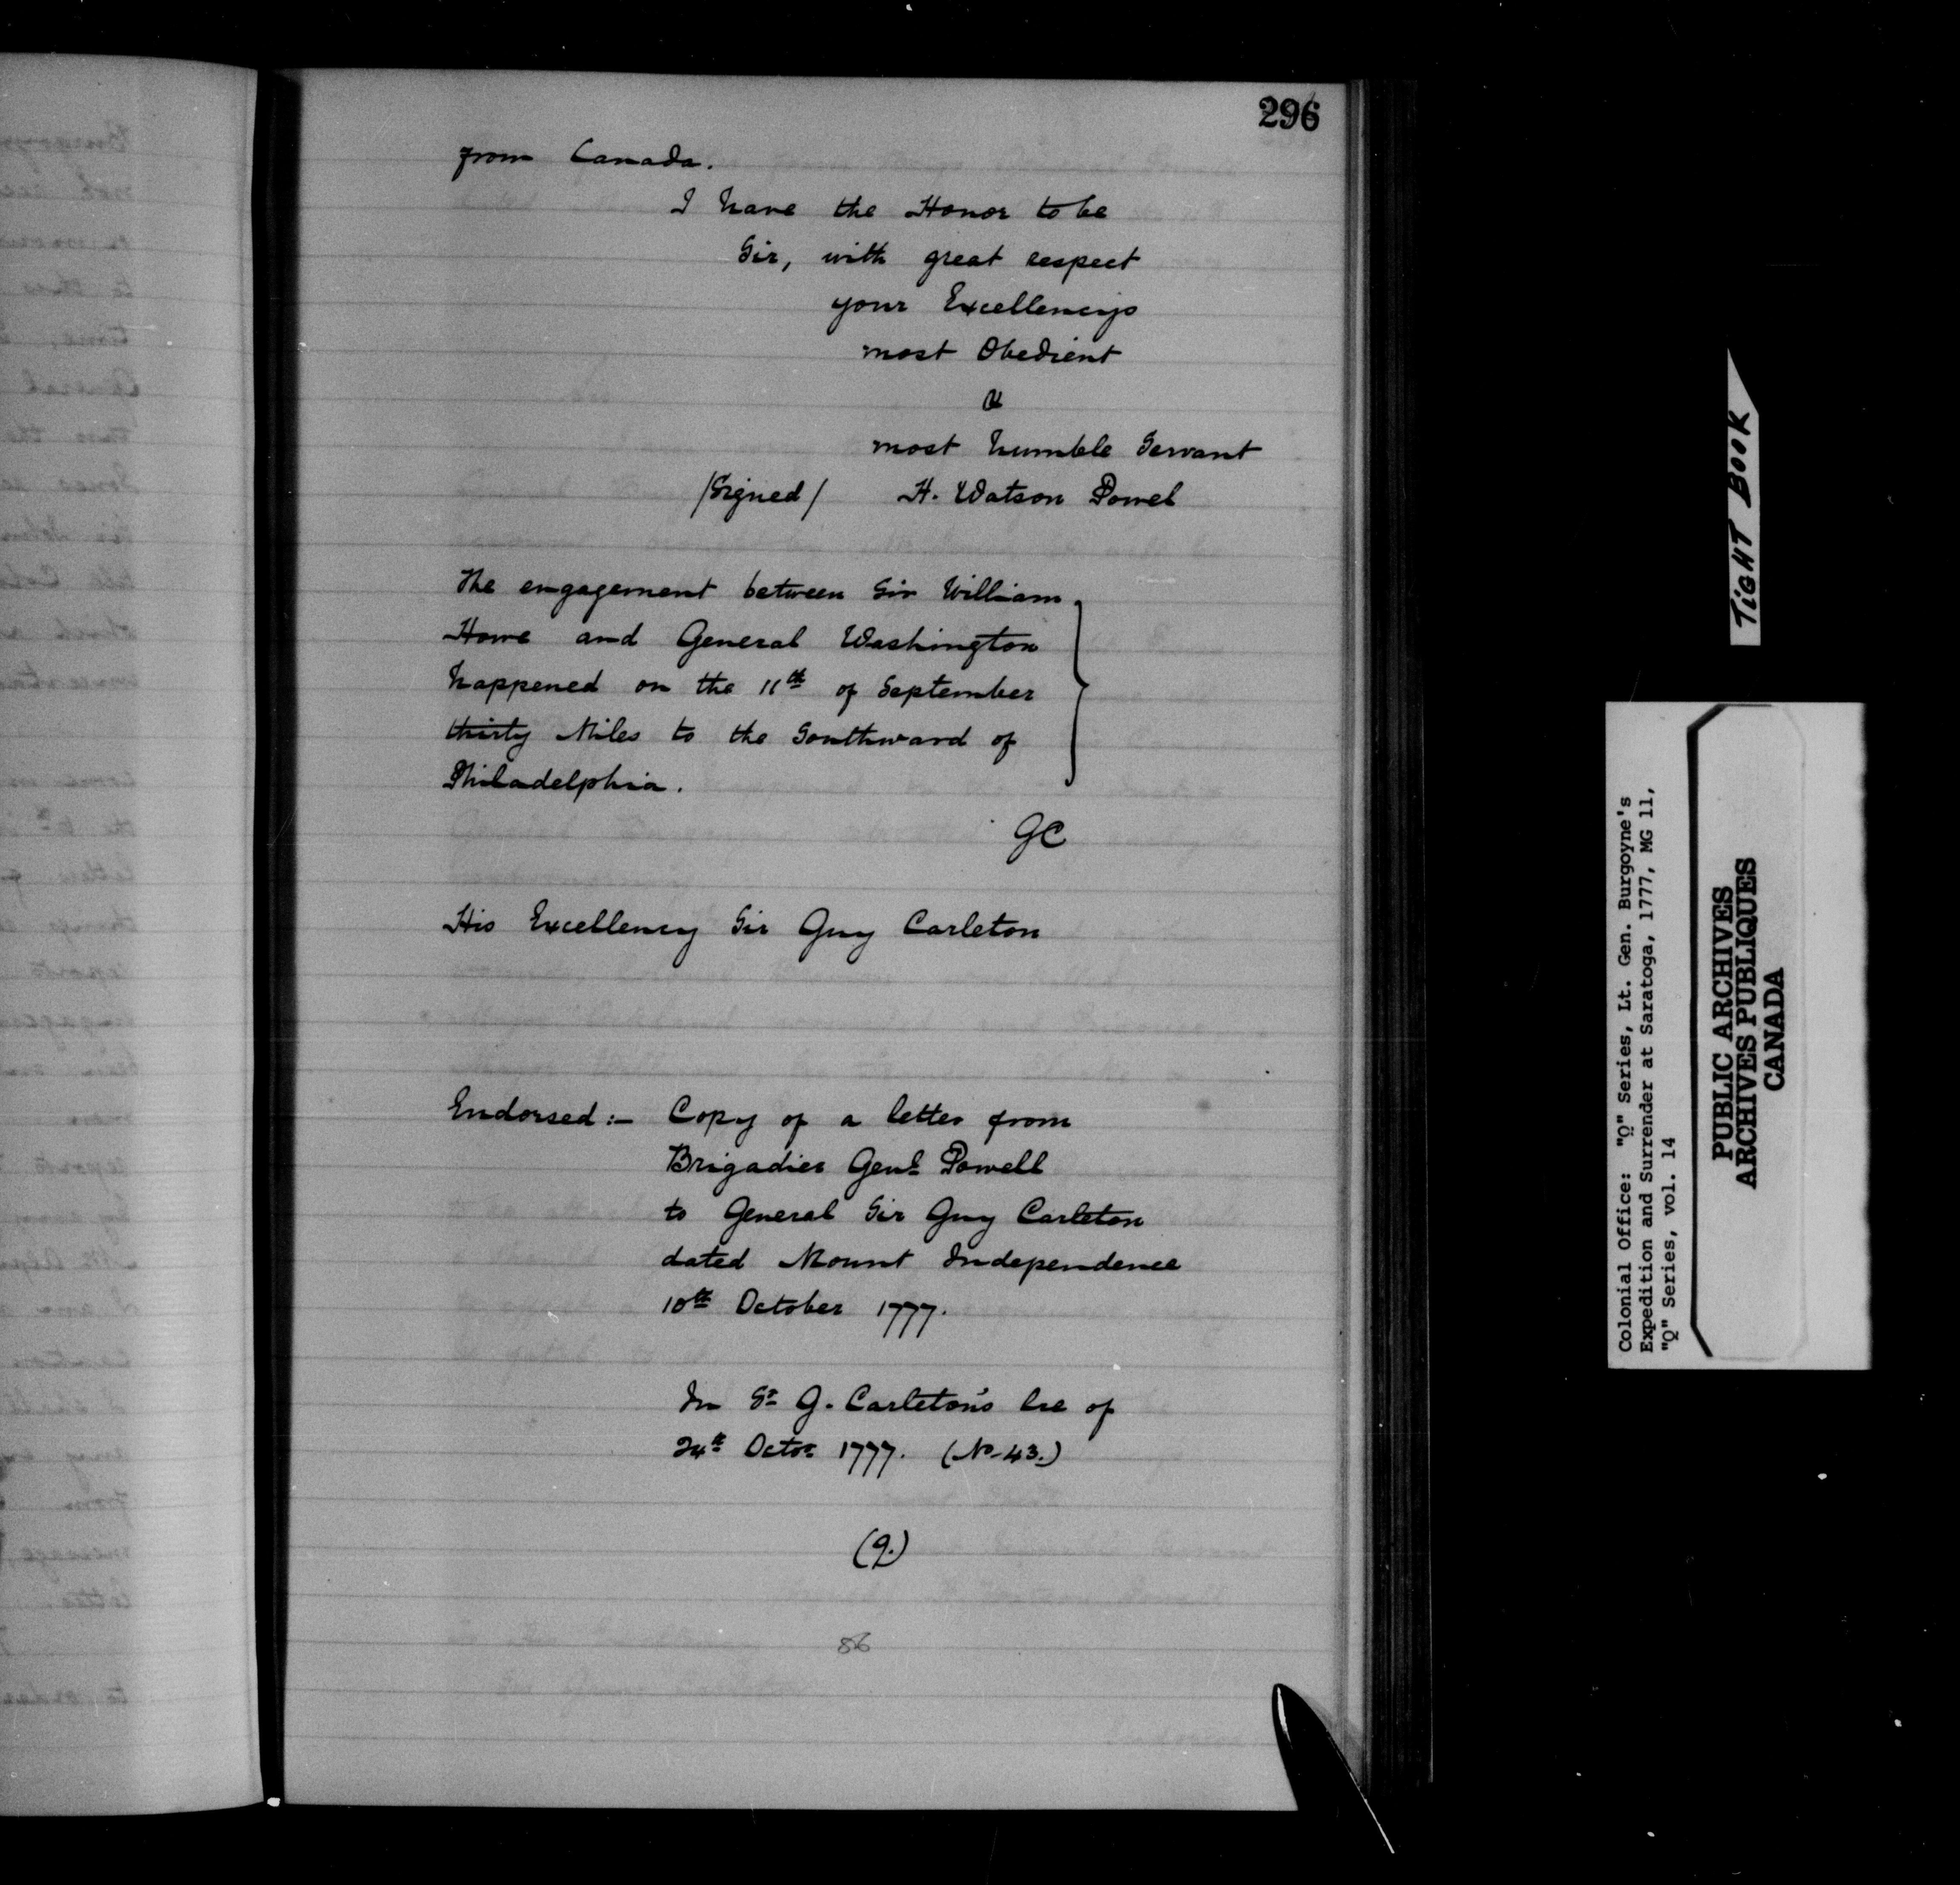 296
from Canada.
I have the Honor to be
Sir, with great respect
your Excellencys
most Obedient
&
most humble Servant
/Signed/ H. Watson Powel
The engagement between Sir William
Howe and General Washington
happened on the 11th of September
thirty Miles to the Southward of
Philadelphia.
GC
His Excellency Sir Guy Carleton
Endorsed:- Copy of a letter from
Brigadier Genl Powell
to General Sir Guy Carleton
dated Mount Independence
10th October 1777.
In Sr G. Carleton's lre of
24th Octor 1777. (No 43.)
(9.)
86
TIGHT BOOK
Colonial Office: "Q" Series, Lt. Gen. Burgoyne's
Expedition and Surrender at Saratoga, 1777, MG 11,
"Q" Series, vol. 14
PUBLIC ARCHIVES
ARCHIVES PUBLIQUES
CANADA